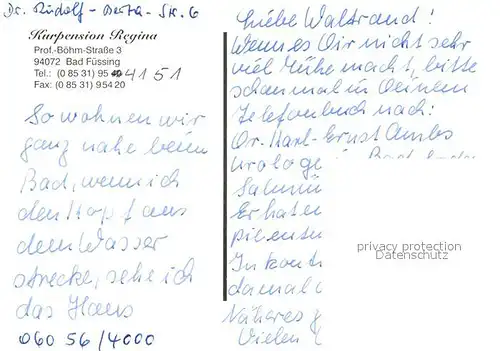 Dr. Rudolf-Berta-Str. 6
Kurpension Regina
Prof.-Böhm-Straße 3
94072 Bad Füssing
Tel.: (0 85 31) 95 4151
Fax: (0 85 31) 954 20
So wohnen wir
ganz nahe beim
Bad, wenn ich
den Kopf aus
dem Wasser
strecke, sehe ich
das Haus
060 56/4000
Liebe Waltraud!
Wenn es Dir nicht sehr
viel Mühe macht, bitte
schau mal in Deinem
Telefonbuch nach:
Dr. Karl-Ernst Ambs
Urologe Bad
Salmün
Er hat e
Inkonti
damal
Näheres
Vielen
privacy protection
Datenschutz